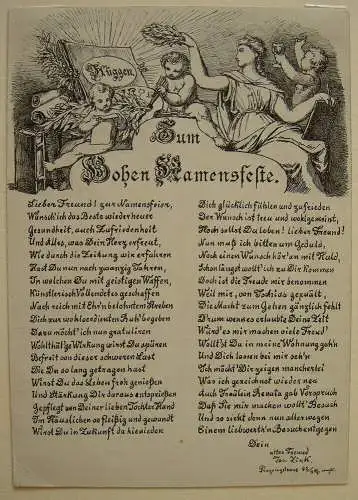 Hüggen.
Zum
Hohen Namensfeste.
Lieber Freund! zur Namensfeier,
Wünsch' ich das Beste wieder heuer
Gesundheit, auch Zufriedenheit
Und Alles, was Dein Herz erfreut,
Wie durch die Zeitung wir erfahren
Hast Du nun nach zwanzig Jahren,
In welchen Du mit geistigen Waffen,
Künstlerisch Vollendetes geschaffen
Nach reich mit Ehr'n belohntem Streben
Dich zur wohlverdienten Ruh' begeben
Darum möcht' ich nun gratuliren
Wohlthät'ge Wirkung wirst Du spüren
Befreit von dieser schweren Last
Die Du so lang getragen hast
Wirst Du das Leben froh genießen
Und Stärkung Dir daraus entsprießen
Gepflegt von Deiner lieben Tochter Hand
Im Häuslichen so fleißig und gewandt
Wirst Du in Zukunft da hienieden
Dich glücklich fühlen und zufrieden
Der Wunsch ist treu und wohlgemeint,
Hoch sollst Du leben! lieber Freund!
Nun muß ich bitten um Geduld,
Noch einen Wunsch hör' an mit Huld,
Schon längst wollt' ich zu Dir kommen
Doch ist die Freude mir benommen
Weil mir, von Tobias gequält,
Die Macht zum Gehen gänzlich fehlt
Drum wenn es erlaubte Deine Zeit
Würd' es mir machen viele Freud'
Wollt'st Du in meine Wohnung geh'n
Und Dich lassen bei mir seh'n
Ich möcht' Dir zeigen mancherlei
Was ich gezeichnet wieder neu
Auch Fräulein Renata gab Vorspruch
Daß Sie mir machen wollt' Besuch
Und so sieht denn nun allerwegen
Einem liebwerth'n Besuch entgegen
Dein
alter Freund